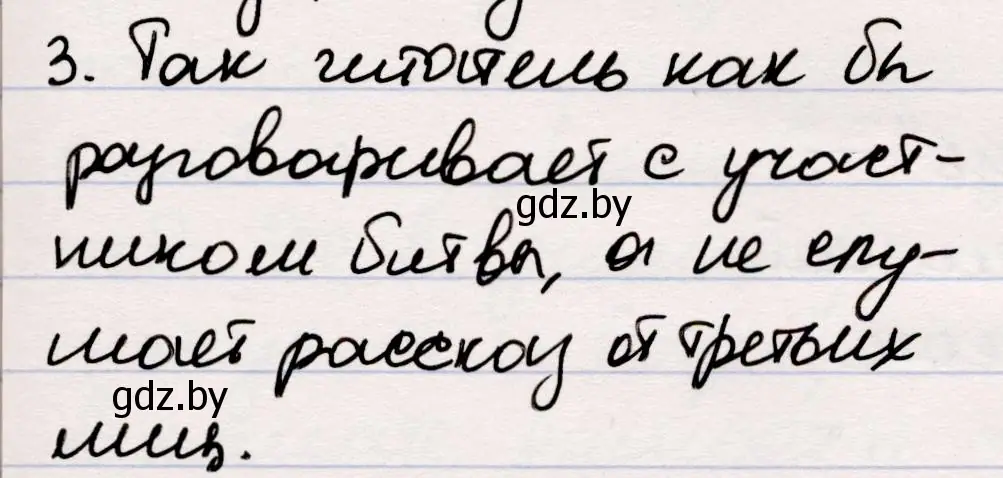 3. Так читатель как бы
разговаривает с участ-
gdz.by
ником битвы, а не слу-
шает рассказ от третьих
gdz.by
лиц.